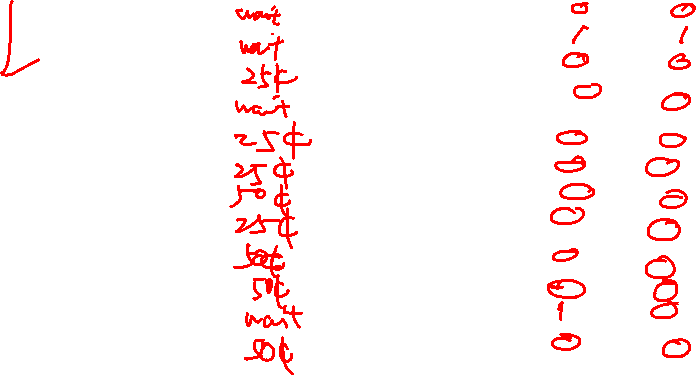 wait 0 0
wait 1 1
25¢ 0 0
wait 0 0
25¢ 0 0
25¢ 0 0
50¢ 0 0
25¢ 0 0
50¢ 0 0
50¢ 0 0
wait 1 0
50¢ 0 0